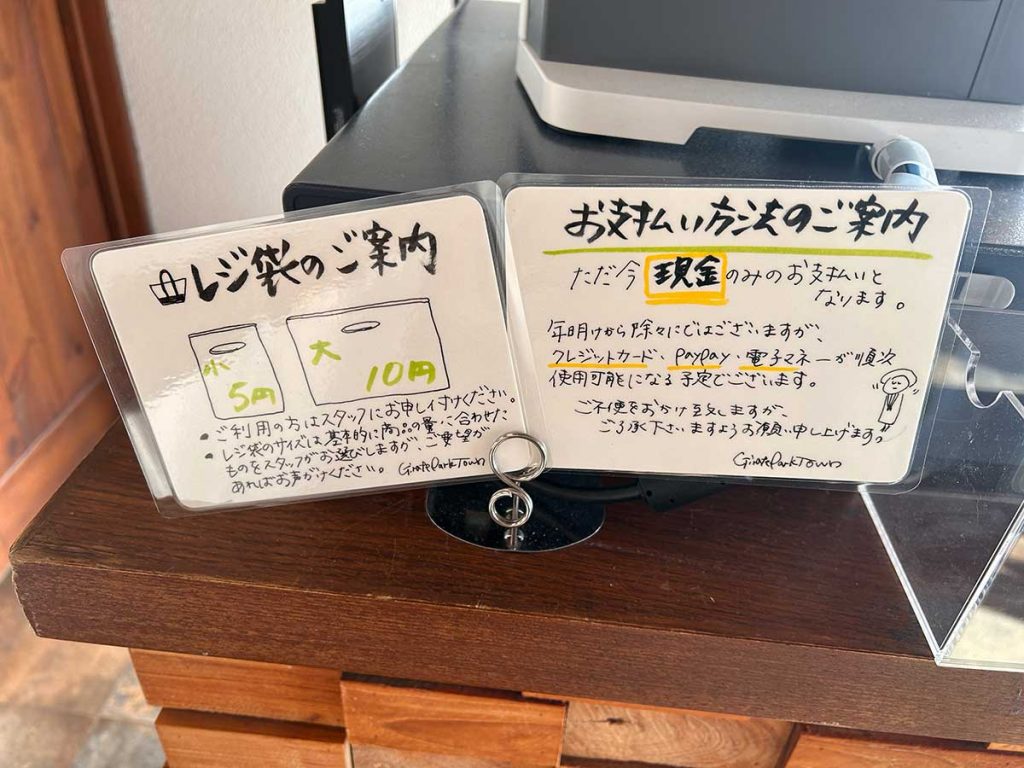 レジ袋のご案内
小
5円
大
10円
ご利用の方はスタッフにお申し付けください。
• レジ袋のサイズは基本的に商品の量に合わせた
• ものをスタッフがお選びしますが、ご要望が
あればお声がけください。
お支払い方法のご案内
ただ今 現金 のみのお支払いと
なります。
年明けから徐々にではございますが、
クレジットカード・PayPay・電子マネーが順次
使用可能になる予定でございます。
ご不便をおかけ致しますが、
ご了承下さいますようお願い申し上げます。